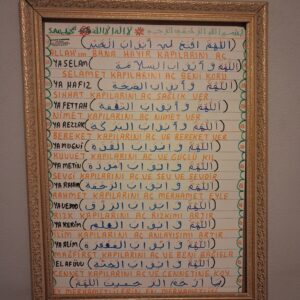 لا اله الا الله
(اللهم افتح لي ابواب الخير)
ALLAH'IM BANA HAYIR KAPILARINI AÇ
YA SELAM (اللهم و ابواب السلامة)
SELAMET KAPILARINI AÇ BENİ KORU
YA HAFIZ (اللهم و ابواب الصحة)
SIHHAT KAPILARINI AÇ SAĞLIK VER
YA FETTAH (اللهم و ابواب النعمة)
NİMET KAPILARINI AÇ NİMET VER
YA REZZAK (اللهم و ابواب البركة)
BEREKET KAPILARINI AÇ VE BEREKET VER
YA MUĞNİ (اللهم و ابواب القوة)
KUVVET KAPILARINI AÇ VE GÜÇLÜ KIL
YA METİN (اللهم و ابواب المودة)
SEVGİ KAPILARINI AÇ VE SEV VE SEVDİR
YA RAHMAN (اللهم و ابواب الرحمة)
RAHMET KAPILARINI AÇ MERHAMET EYLE
YA VEDUD (اللهم و ابواب الرزق)
RIZK KAPILARINI AÇ RIZKIMI ARTIR
YA KERİM (اللهم و ابواب العلم)
İLİM KAPILARINI AÇ ANLAYIŞIMI ARTIR
YA ALİM (اللهم و ابواب المغفرة)
MAĞFİRET KAPILARINI AÇ VE BENİ BAĞIŞLA
EL AFUVV (اللهم و ابواب الجنة)
CENNET KAPILARINI AÇ VE CENNETİNE KOY
(يا ارحم الرحمين اللهم)